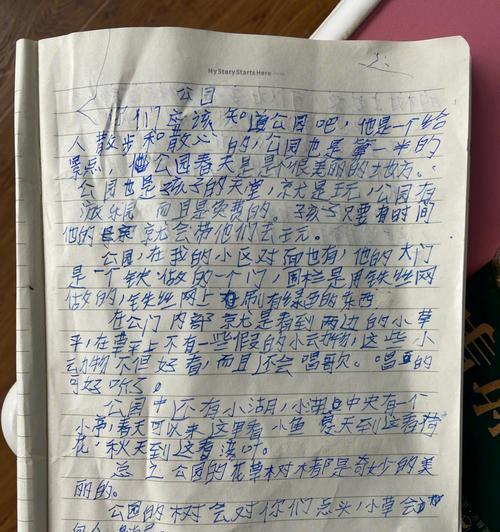 My Story Starts Here
公园
你们应该知道公园吧，他是一个给
人散步和散心的，公园也是第一美的
景点，公园春天是是个很美丽的地方。
公园也是孩子的天堂，京尤是王元，公园有
游乐园，而且是免费的。孩子只要有时间
他的 京尤会带他们去王元。
公园，在我的小区对面也有，他的大门
是一个铁做的一个门，围栏是用铁丝网
做的，铁丝网上刷有绿色的东西
在公门内部京尤是看到两边的小草
乎，在草平上不有一些假的小动物，这些小
动物不但好看，而且还会唱歌。唱的
可好听了。
公园中还有小湖，小湖中央有一个
小亭，春天可以来这里看小鱼 夏天到这看荷
花，秋天到这看
总之公园的花草树木都是奇妙的美
丽的。
公园的树会对你们点头，小草会
向人